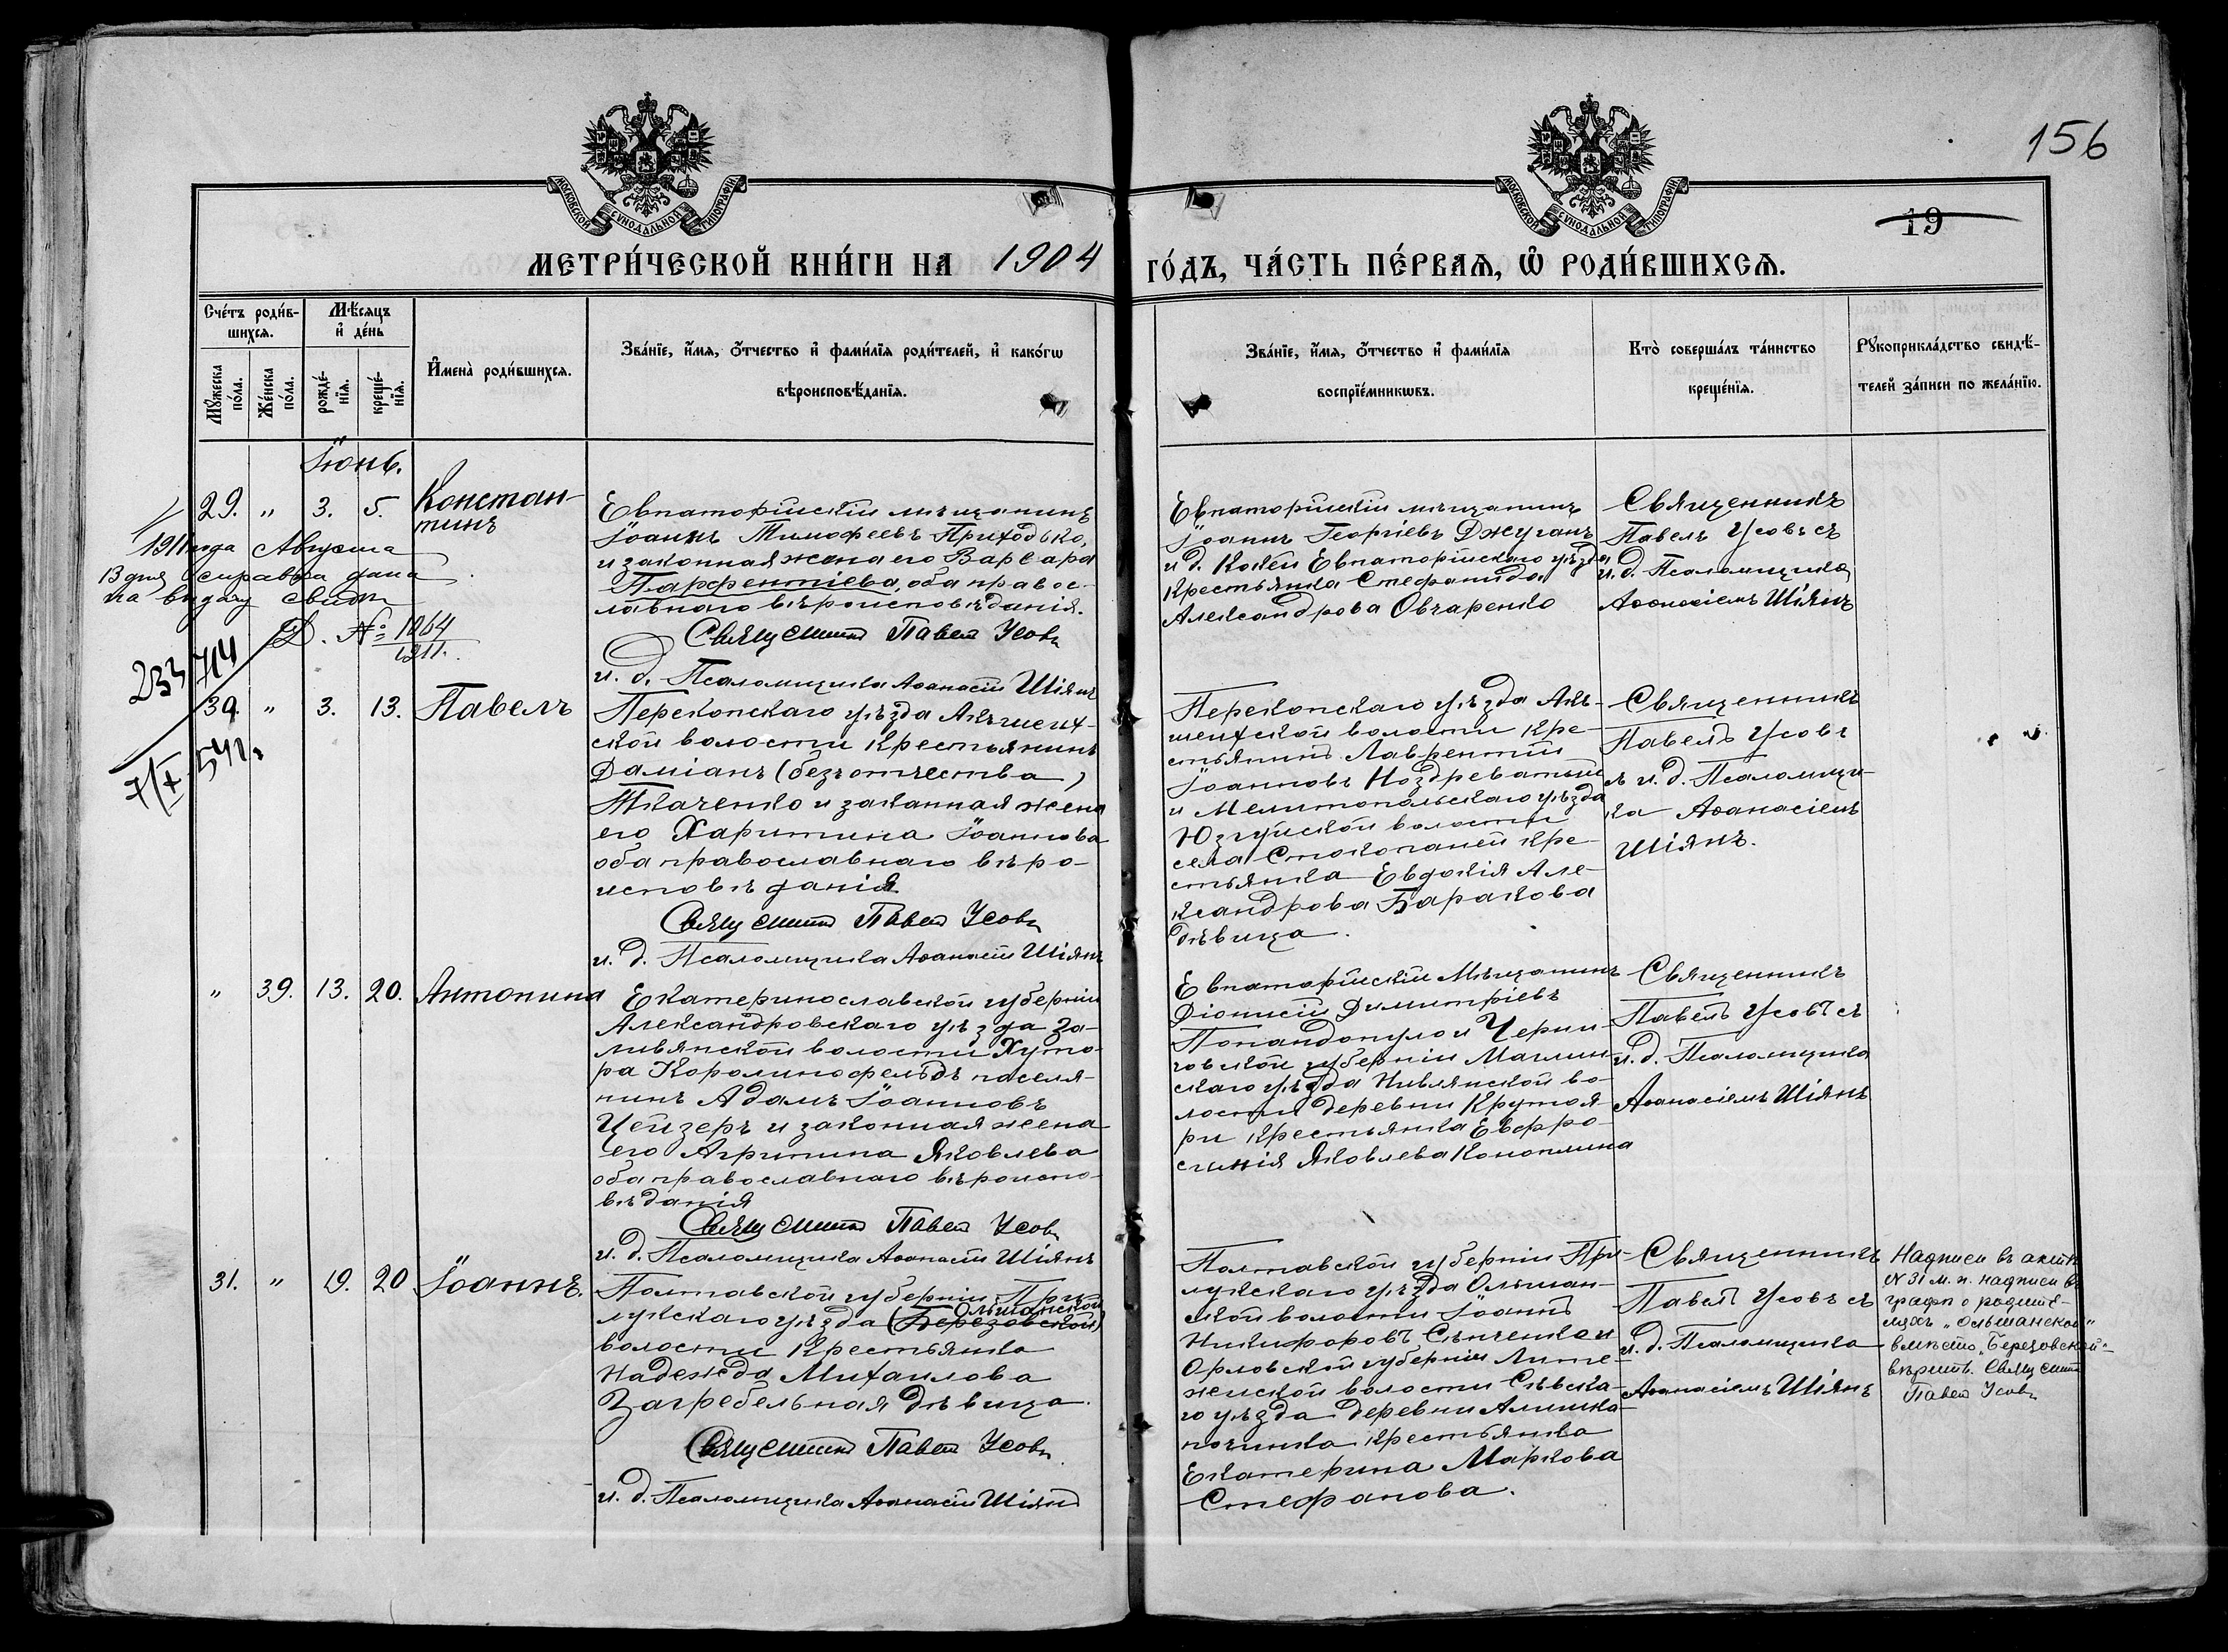 156
МОСКОВСКОЙ СѴНОДАЛЬНОЙ ТИПОГРАФІИ
МОСКОВСКОЙ СѴНОДАЛЬНОЙ ТИПОГРАФІИ
19
МЕТРИ́ЧЕСКОЙ КНИ́ГИ НА 1904 ГО́ДЪ, ЧА́СТЬ ПЕ́РВАѦ, Ѽ РОДИ́ВШИХСѦ.
Сче́тъ роди́в-
шихсѧ.
Мꙋ́жеска по́ла.
Же́нска по́ла.
Мѣ́сѧцъ
и҆ де́нь
рожде́-
нїѧ.
креще́-
нїѧ.
И҆мена̀ роди́вшихсѧ.
Зва́нїе, и҆́мѧ, ѻ҆́тчество и҆ фами́лїѧ роди́телей, и҆ како́гѡ
вѣроисповѣ́данїѧ.
Зва́нїе, и҆́мѧ, ѻ҆́тчество и҆ фами́лїѧ
воспрїе́мникѡвъ.
Кто̀ соверша́лъ та́инство
креще́нїѧ.
Рꙋкоприкла́дство свидѣ́-
телей за́писи по жела́нїю.
Іюнь.
29. " 3. 5. Констан-
тинъ
1911 года Августа
13 дня справка дана
на выдачу свид.
Д. № 1064
1911.
Евпаторійскій мѣщанинъ
Іоаннъ Тимофеевъ Приходько,
и законная жена его Варвара
Парфентіева, оба правос-
лавнаго вѣроисповѣданія.
Священникъ Павелъ Усовъ
и. д. Псаломщика Аѳанасій Шіянъ
Евпаторійскій мѣщанинъ
Іоаннъ Георгіевъ Джуганъ
и д. Кокеи Евпаторійскаго уѣзда
Крестьянка Стефанида
Александрова Овчаренко
Священникъ
Павелъ Усовъ съ
и. д. Псаломщика
Аѳанасіемъ Шіянъ
233 714
7/X 541
30. " 3. 13. Павелъ
Перекопскаго уѣзда Акъшеих-
ской волости крестьянинъ
Даміанъ (безъ отчества)
Ткаченко и законная жена
его Харитина Іоаннова
оба православнаго вѣро-
исповѣданія
Священникъ Павелъ Усовъ
и. д. Псаломщика Аѳанасій Шіянъ
Перекопскаго уѣзда Акъ-
шеихской волости кре-
стьянинъ Лаврентій
Іоанновъ Ноздреватый
и Мелитопольскаго уѣзда
Юзкуйской волости
села Стокопаней кре-
стьянка Евдокія Але-
ксандрова Баракова
дѣвица.
Священникъ
Павелъ Усовъ
съ и. д. Псаломщи-
ка Аѳанасіемъ
Шіянъ.
" 39. 13. 20. Антонина
Екатеринославской губерніи
Александровскаго уѣзда За-
ливянской волости Хуто-
ра Каролинофельдъ поселя-
нинъ Адамъ Іоанновъ
Цейзеръ и законная жена
его Агрипина Яковлева
оба православнаго вѣроиспо-
вѣданія
Священникъ Павелъ Усовъ
и. д. Псаломщика Аѳанасій Шіянъ
Евпаторійскій Мѣщанинъ
Діонисій Димитріевъ
Попандопуло и Черни-
говской губерніи Маглин-
скаго уѣзда Нивлянской во-
лости деревни Крутоя-
ри крестьянка Евфро-
синія Яковлева Коноплина
Священникъ
Павелъ Усовъ съ
и. д. Псаломщика
Аѳанасіемъ Шіянъ
31. " 19. 20 Іоаннъ.
Полтавской губерніи При-
Ольшанской
лукскаго уѣзда (Березовской)
волости Крестьянка
Надежда Михаилова
Загребельная дѣвица.
Священникъ Павелъ Усовъ
и. д. Псаломщика Аѳанасій Шіянъ
Полтавской губерніи При-
лукскаго уѣзда Ольшан-
ской волости Іоаннъ
Никифоровъ Сѣнченко и
Орловской губерніи Лите-
жеской волости Сѣвска-
го уѣзда деревни Алешка-
починка крестьянка
Екатерина Маркова
Стефанова.
Священникъ
Павелъ Усовъ съ
и. д. Псаломщика
Аѳанасіемъ Шіянъ
Надписи въ актѣ
№ 31 м. п. надписи въ
графѣ о родите-
ляхъ "Ольшанской"
вмѣсто "Березовской"
вѣрить. Священникъ
Павелъ Усовъ